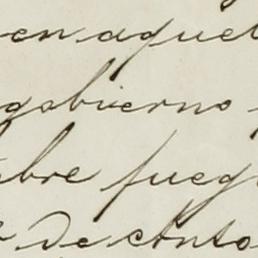 en aquel
gobierno
bre fueg
de Anto